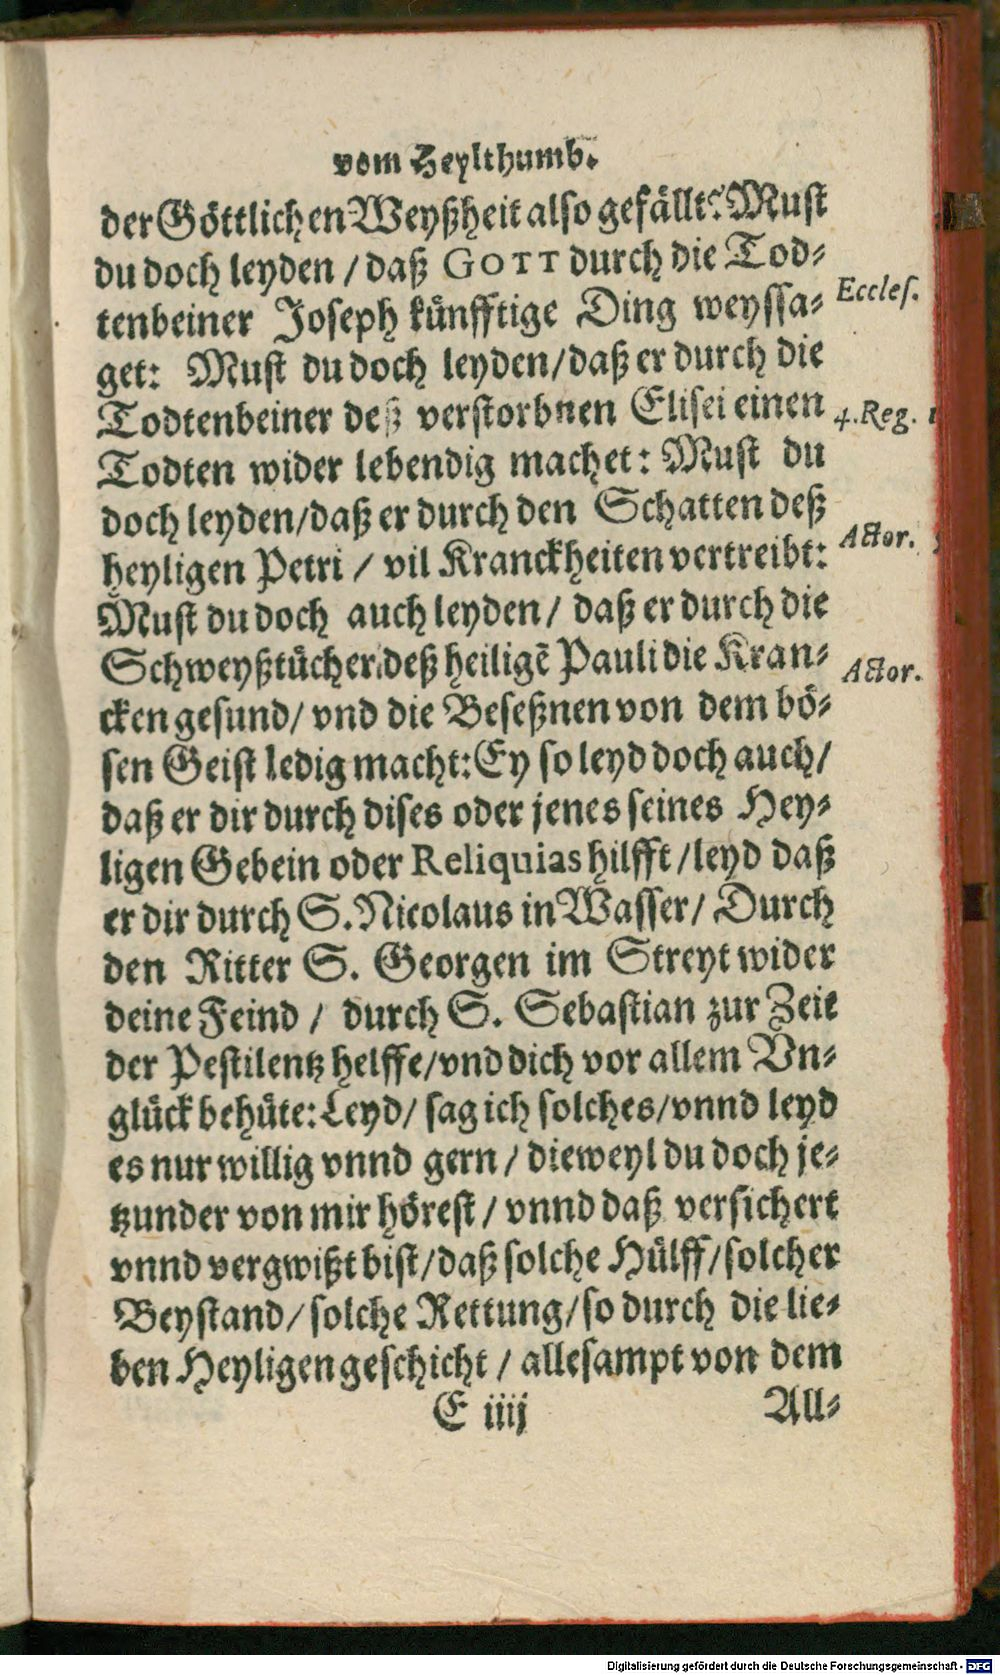 vom Heylthumb.
der Göttlichen Weyßheit also gefällt? Must
du doch leyden / daß GOTT durch die Tod-
tenbeiner Joseph künfftige Ding weyssa-
Eccles.
get: Must du doch leyden / daß er durch die
Todtenbeiner deß verstorbnen Elisei einen
4. Reg.
Todten wider lebendig machet: Must du
doch leyden / daß er durch den Schatten deß
heyligen Petri / vil Kranckheiten vertreibt:
Actor.
Must du doch auch leyden / daß er durch die
Schweyßtücher deß heiligẽ Pauli die Kran-
Actor.
cken gesund / vnd die Beseßnen von dem bö-
sen Geist ledig macht: Ey so leyd doch auch /
daß er dir durch dises oder jenes seines Hey-
ligen Gebein oder Reliquias hilfft / leyd daß
er dir durch S. Nicolaus in Wasser / Durch
den Ritter S. Georgen im Streyt wider
deine Feind / durch S. Sebastian zur Zeit
der Pestilentz helffe / vnd dich vor allem Vn-
glück behüte: Leyd / sag ich solches / vnnd leyd
es nur willig vnnd gern / dieweyl du doch je-
tzunder von mir hörest / vnnd daß versichert
vnnd vergwißt bist / daß solche Hülff / solcher
Beystand / solche Rettung / so durch die lie-
ben Heyligen geschicht / allesampt von dem
E iiij
All-
Digitalisierung gefördert durch die Deutsche Forschungsgemeinschaft - DFG